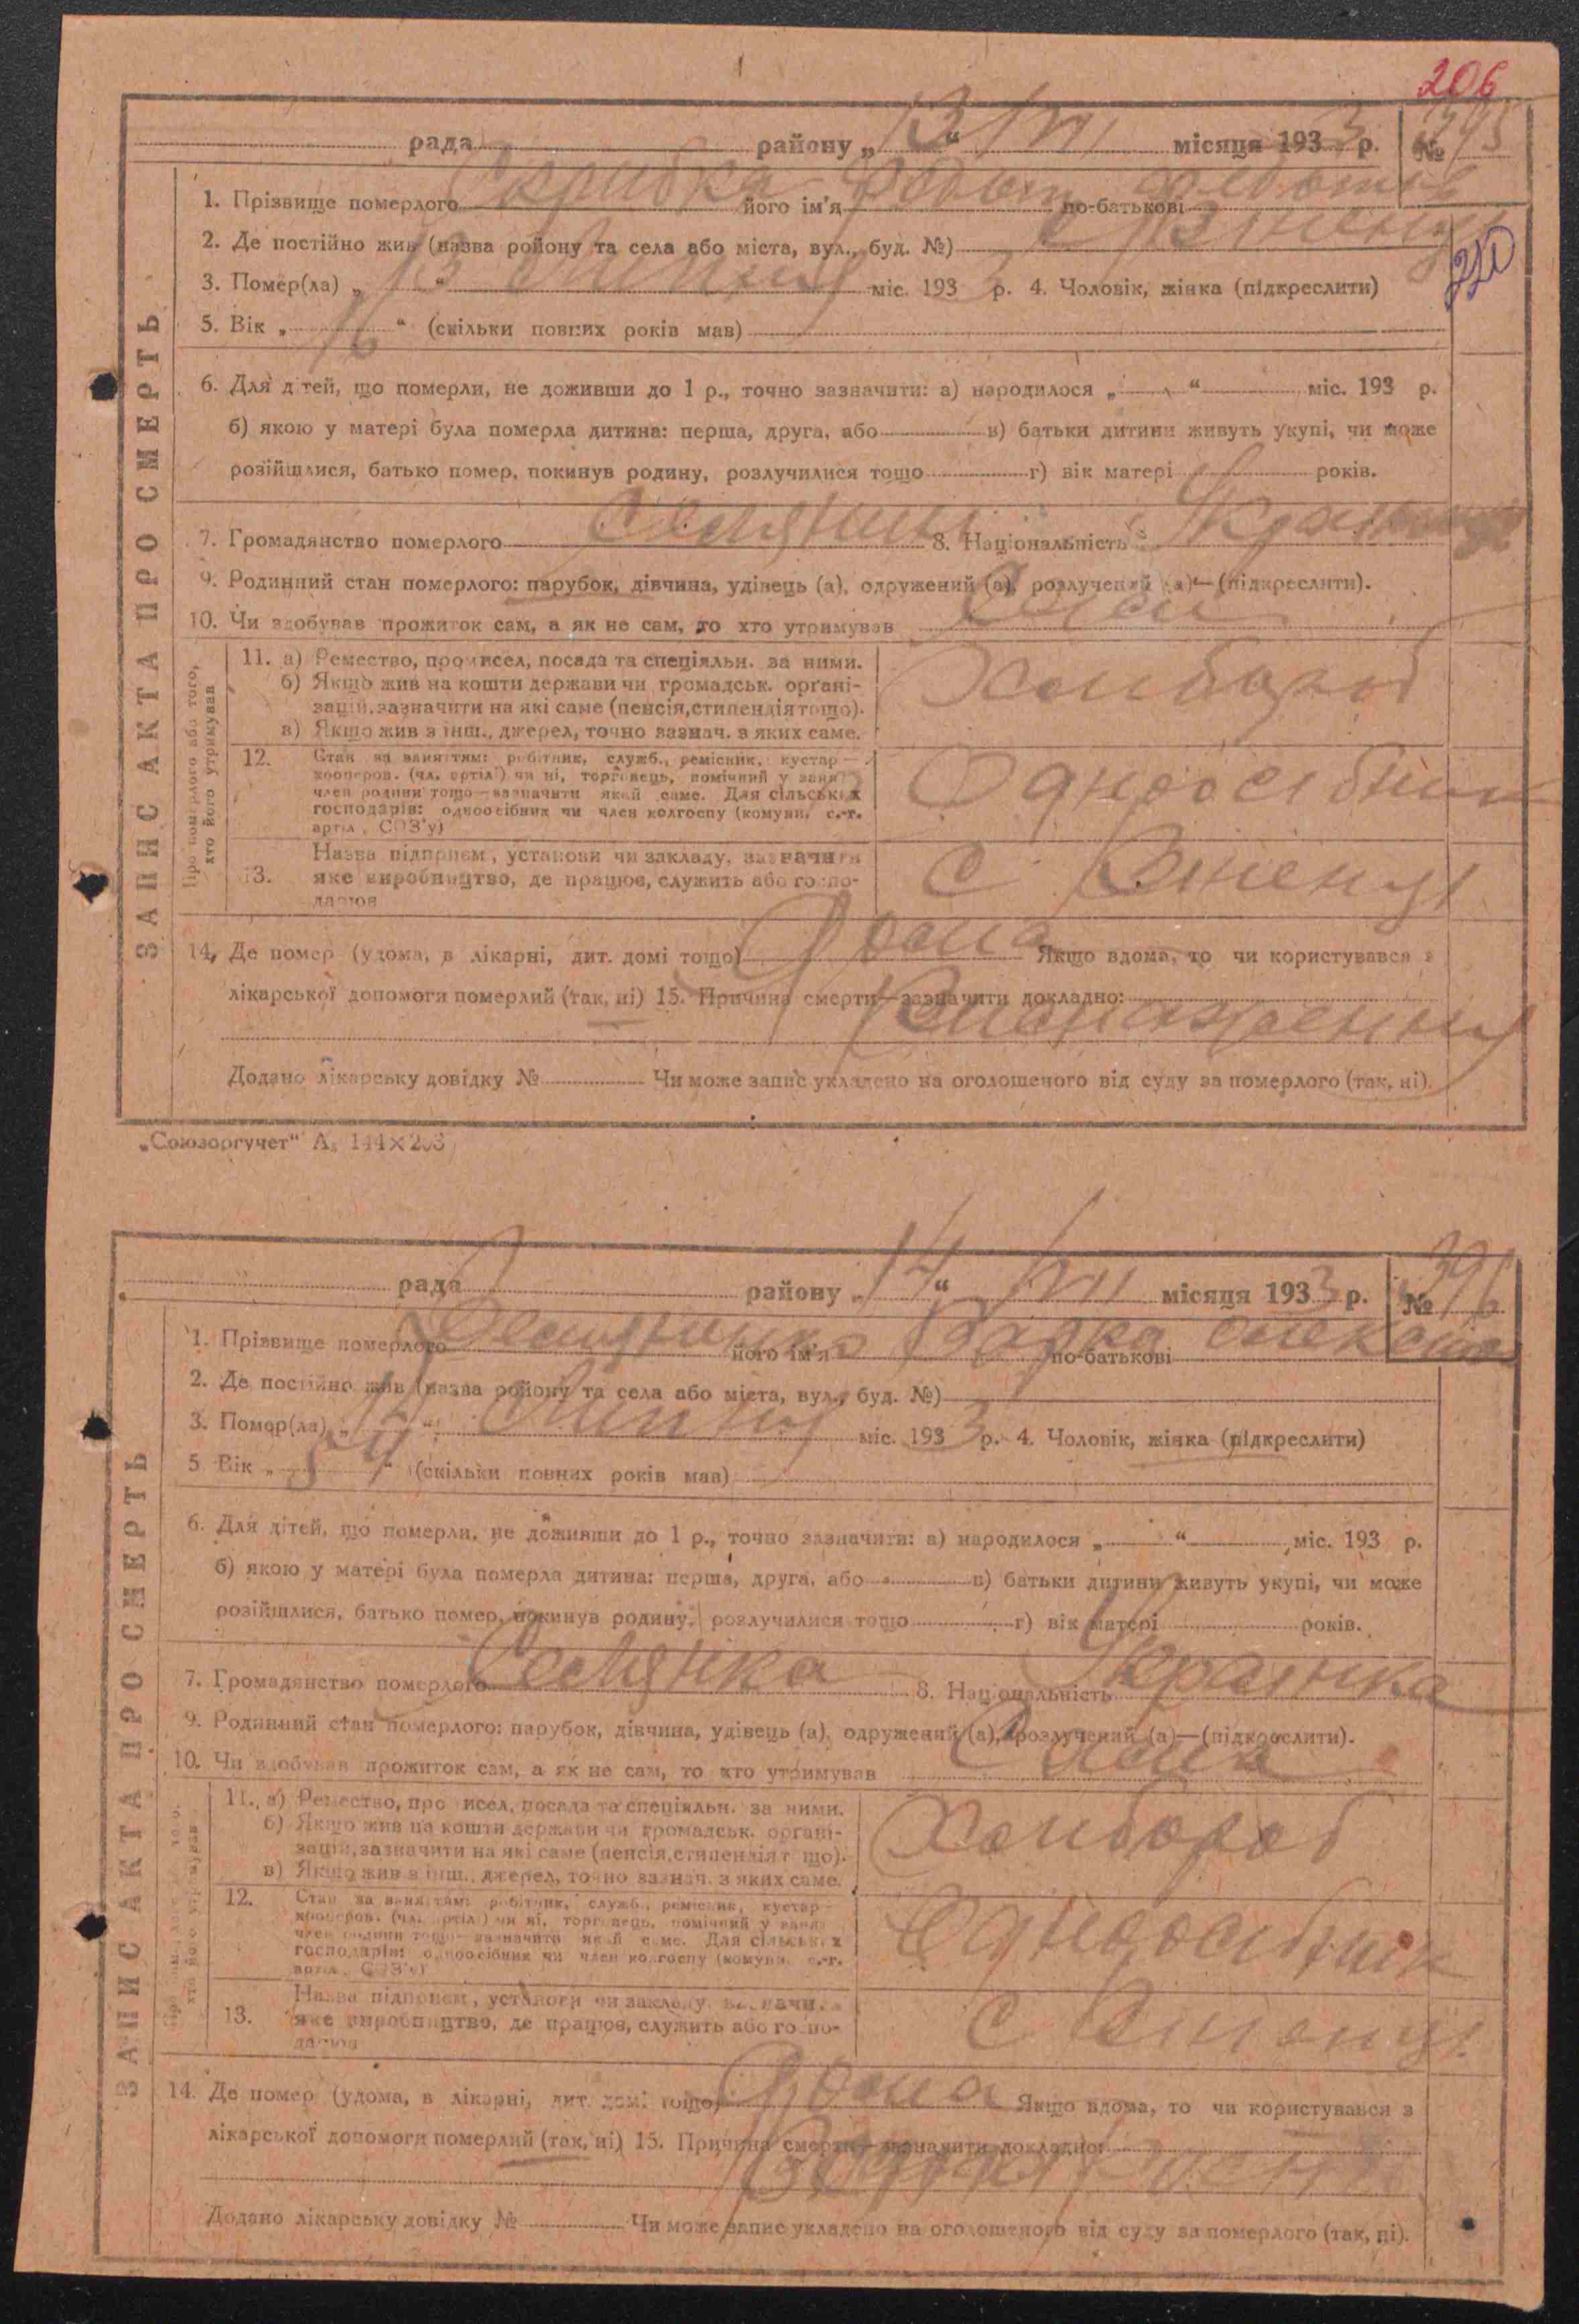 206
рада району „13“ VII місяця 1933 р. № 395
1. Прізвище померлого Скрибка його ім'я Федот по-батькові
2. Де постійно жив (назва ройону та села або міста, вул., буд. №)
220
3. Помер(ла) „13“ Липня міс. 1933 р. 4. Чоловік, жінка (підкреслити)
5. Вік „16“ (скільки повних років мав)
6. Для дітей, що померли, не доживши до 1 р., точно зазначити: а) народилося „ “ міс. 193 р.
б) якою у матері була померла дитина: перша, друга, або в) батьки дитини живуть укупі, чи може
розійшлися, батько помер, покинув родину, розлучилися тощо г) вік матері років.
7. Громадянство померлого Селянин 8. Національність
9. Родинний стан померлого: парубок, дівчина, удівець (а), одружений (а), розлучений (а)—(підкреслити).
10. Чи здобував прожиток сам, а як не сам, то хто утримував Сам
ЗАПИС АКТА ПРО СМЕРТЬ
Про померлого або того,
хто його утримував
11. а) Ремество, промисел, посада та спеціяльн. за ними.
б) Якщо жив на кошти держави чи громадськ. органі-
зацій, зазначити на які саме (пенсія, стипендія тощо).
в) Якщо жив з інш., джерел, точно зазнач. з яких саме.
Хлибороб
12. Стан за заняттям: робітник, служб., ремісник, кустар—
кооперов. (чл. артілі) чи ні, торговець, помічний у занят.
член родини тощо—зазначити який саме. Для сільських
господарів: одноосібник чи член колгоспу (комуни, с.-г.
артіл., СОЗ'у)
Одноосібник
13. Назва підприєм., установи чи закладу, зазначити
яке виробництво, де працює, служить або госпо-
дарює
14. Де помер (удома, в лікарні, дит. домі тощо) Удома Якщо вдома, то чи користувався з
лікарської допомоги померлий (так, ні) 15. Причина смерти—зазначити докладно:
Додано лікарську довідку № Чи може запис укладено на оголошеного від суду за померлого (так, ні).
„Союзоргучет“ А₅ 144×203
рада району „14“ VII місяця 1933 р. № 396
1. Прізвище померлого його ім'я по-батькові
2. Де постійно жив (назва ройону та села або міста, вул., буд. №)
3. Помер(ла) „14“ Липня міс. 1933 р. 4. Чоловік, жінка (підкреслити)
5 Вік „54“ (скільки повних років мав)
6. Для дітей, що померли, не доживши до 1 р., точно зазначити: а) народилося „ “ міс. 193 р.
б) якою у матері була померла дитина: перша, друга, або в) батьки дитини живуть укупі, чи може
розійшлися, батько помер, покинув родину, розлучилися тощо г) вік матері років.
7. Громадянство померлого Селянка 8. Національність Українка
9. Родинний стан померлого: парубок, дівчина, удівець (а), одружений (а), розлучений (а)—(підкреслити).
10. Чи здобував прожиток сам, а як не сам, то хто утримував Сама
ЗАПИС АКТА ПРО СМЕРТЬ
11. а) Ремество, промисел, посада та спеціяльн. за ними.
б) Якщо жив на кошти держави чи громадськ. органі-
зацій, зазначити на які саме (пенсія, стипендія тощо).
в) Якщо жив з інш., джерел, точно зазнач. з яких саме.
Хлибороб
12. Стан за заняттям: робітник, служб., ремісник, кустар—
кооперов. (чл. артілі) чи ні, торговець, помічний у занят.
член родини тощо—зазначити який саме. Для сільських
господарів: одноосібник чи член колгоспу (комуни, с.-г.
артіл., СОЗ'у)
Одноосібник
13. Назва підприєм., установи чи закладу, зазначити
яке виробництво, де працює, служить або госпо-
дарює
14. Де помер (удома, в лікарні, дит. домі тощо) Удома Якщо вдома, то чи користувався з
лікарської допомоги померлий (так, ні) 15. Причина смерти—зазначити докладно:
Додано лікарську довідку № Чи може запис укладено на оголошеного від суду за померлого (так, ні).